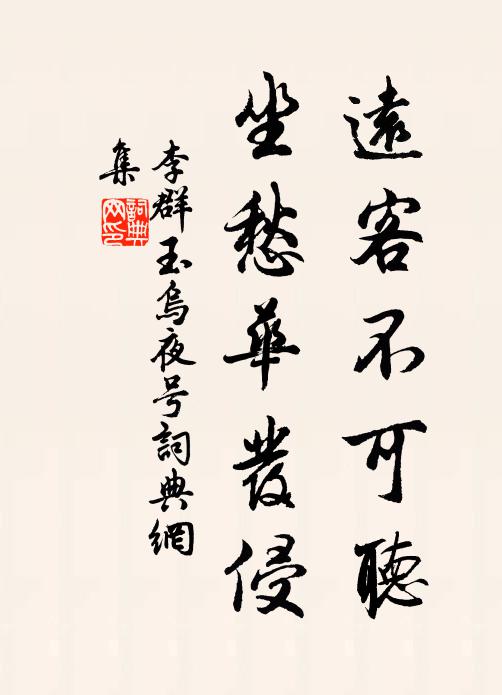 遠客不可聽
坐愁華發侵
李群玉烏夜号詞典網
集
詞典網印